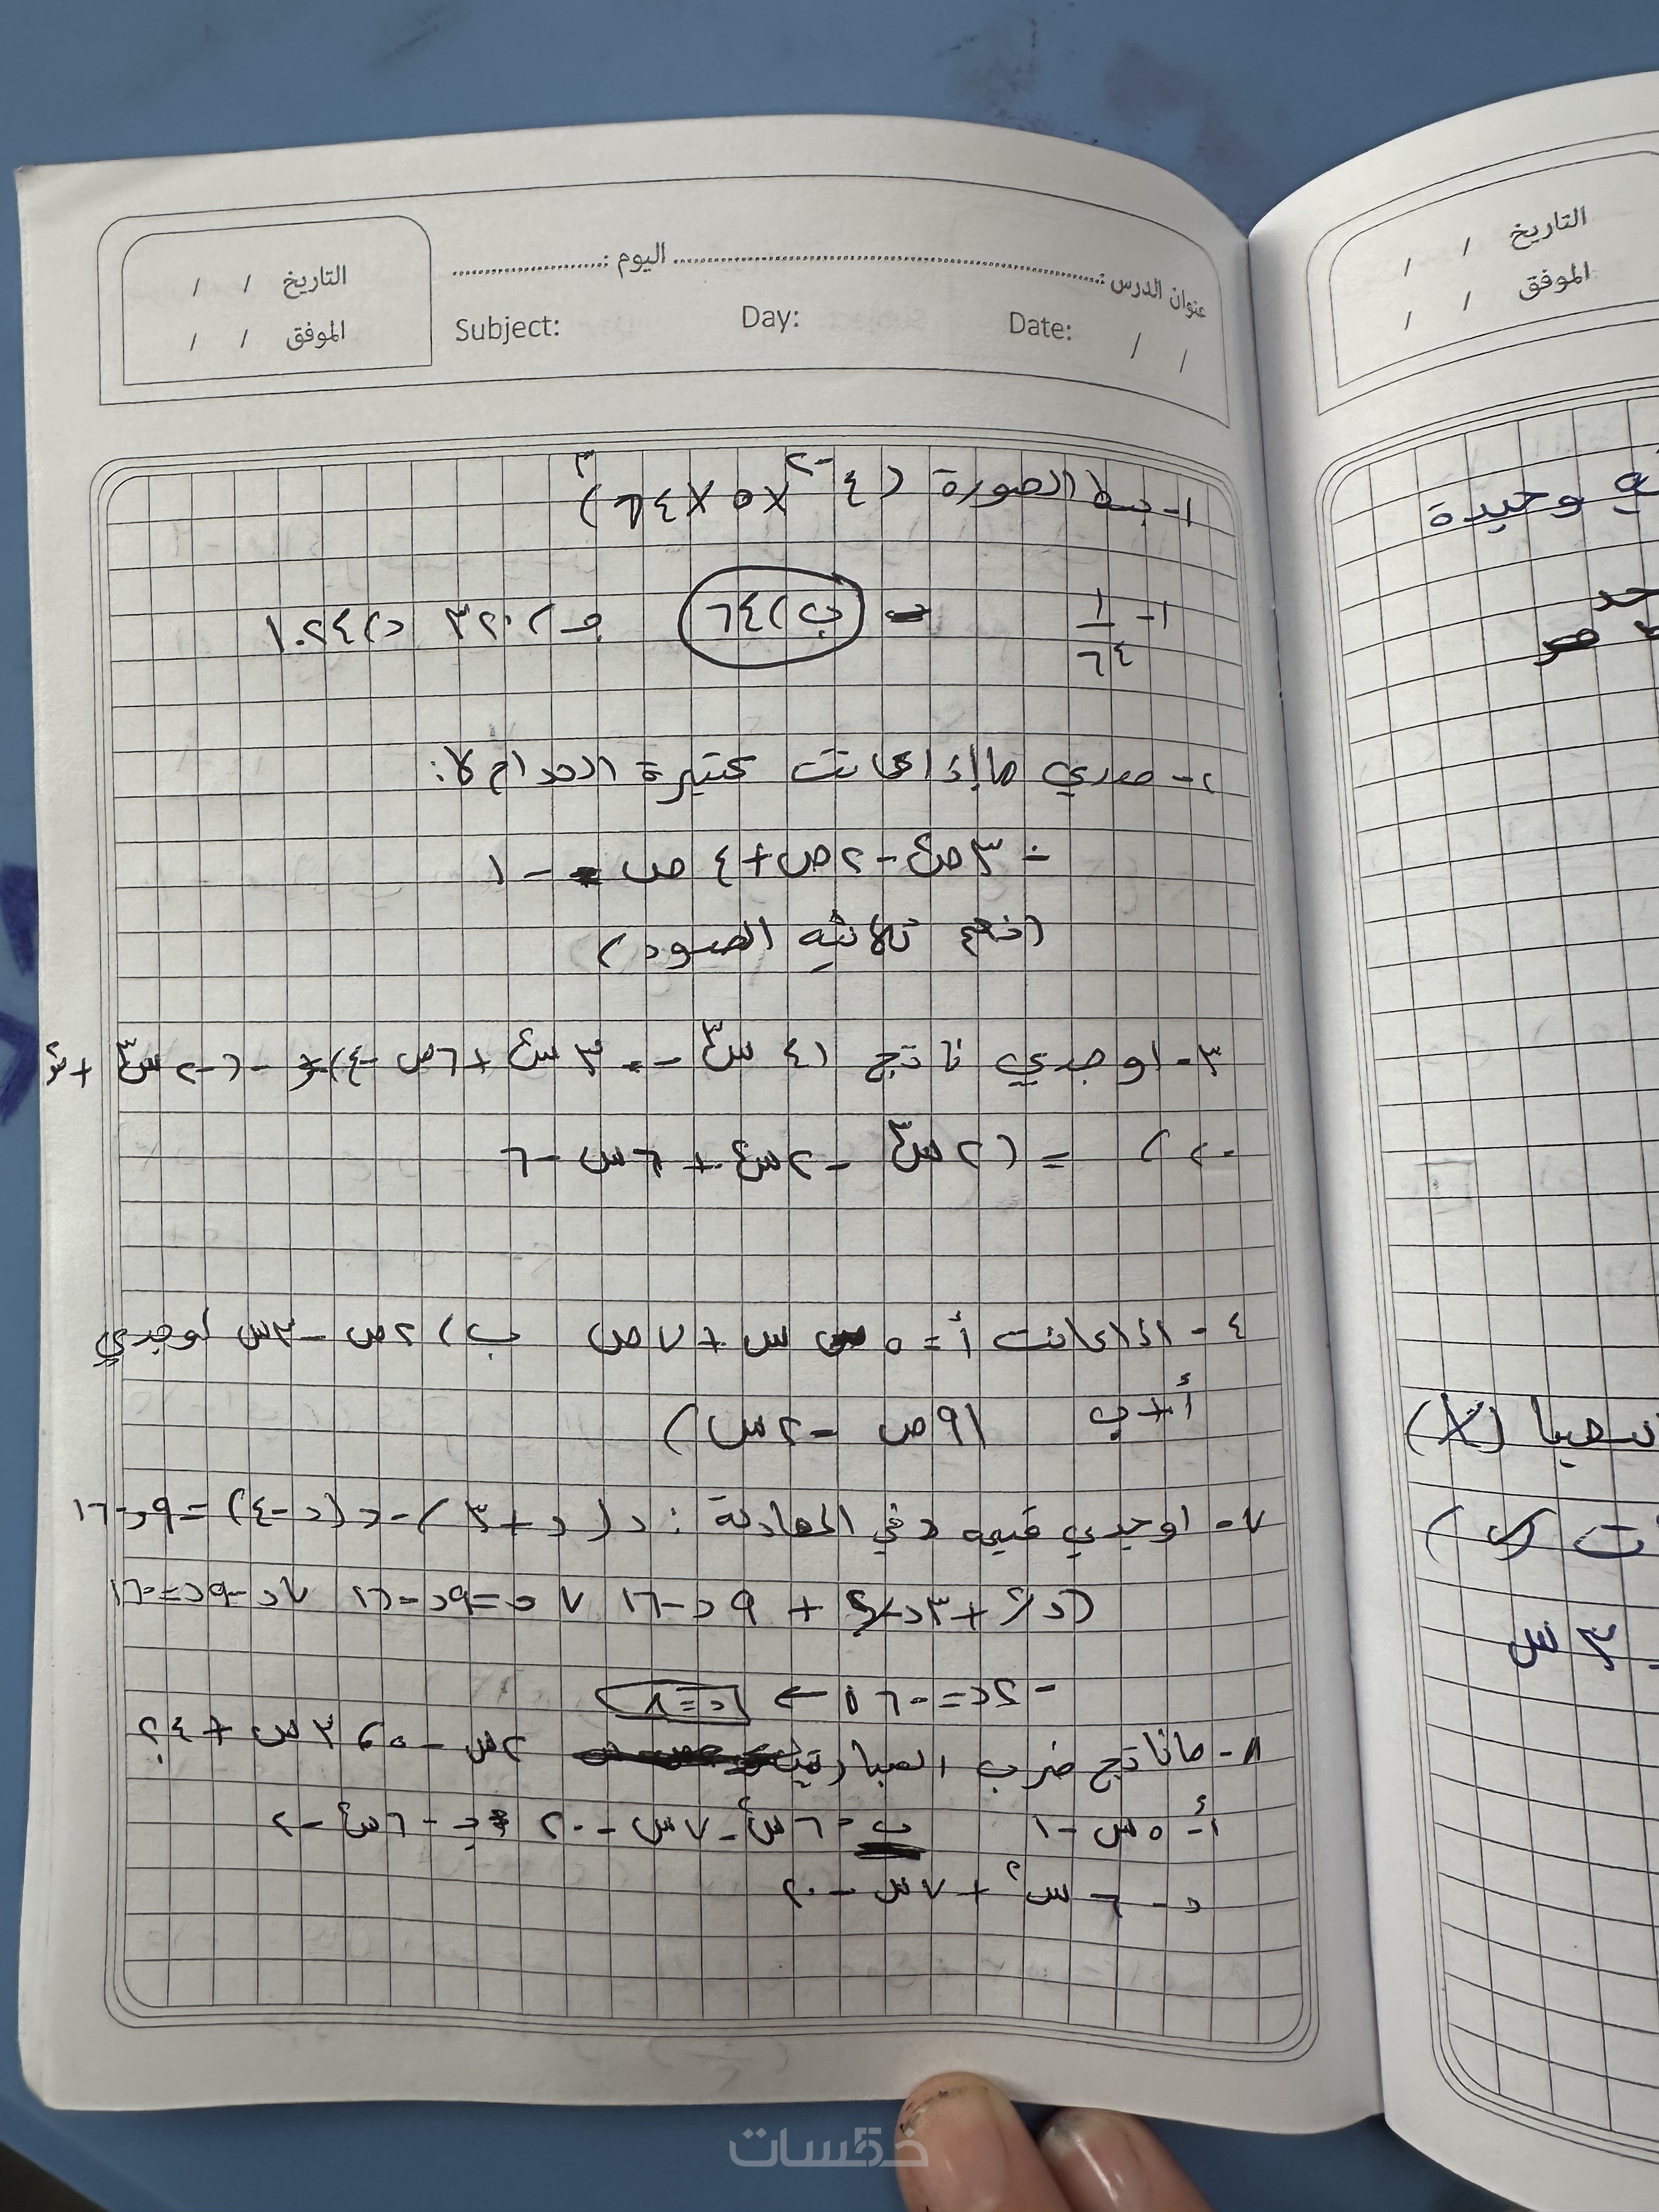 عنوان الدرس : اليوم :
التاريخ / /
الموفق / /
Subject: Day: Date: / /
١- بسط الصورة (٤^-٢ × ٥ × ٤
١- ١/٦٤ ب) ٦٤ جـ) ٣٢٠ د) ١٠٢٤
٢- صدري ما إذا كانت كثيرة الحدام لا:
÷ ٣ص٤ - ٢ص + ٤ ص - ١
(نعم ثلاثيه الصود)
٣- اوجدي ناتج (٤ س٣ - ٣ س٢ + ٦ص - ٤) - (-٢ س٣ + س٢
- ٢) = (٢ س٣ - ٢س٢ + ٦س - ٦
٤- اذا كانت أ = ٥ س + ٧ ص ب) ٢ص - ٣س اوجدي
أ + ب (٩ص - ٢س)
٧- اوجدي قيمه د في المعادلة : د (د + ٣) - د (د - ٤) = ٩د - ١٦
(د٢ + ٣د - د٢ + ٩د - ١٦ ٧د = ٩د - ١٦ ٧د - ٩د = -١٦
- ٢د = -١٦ ← د = ٨
٨- ماناتج ضرب العبارتين ٢س - ٥ و ٣ص + ٤؟
أ- ٥س - ١ ب - ٦س٢ - ٧س - ٢٠ جـ - ٦س٢ - ٢
د - ٦ س٢ + ٧س - ٢٠
التاريخ / /
الموفق / /
وحيدة
(X)
٣ س
خمسات